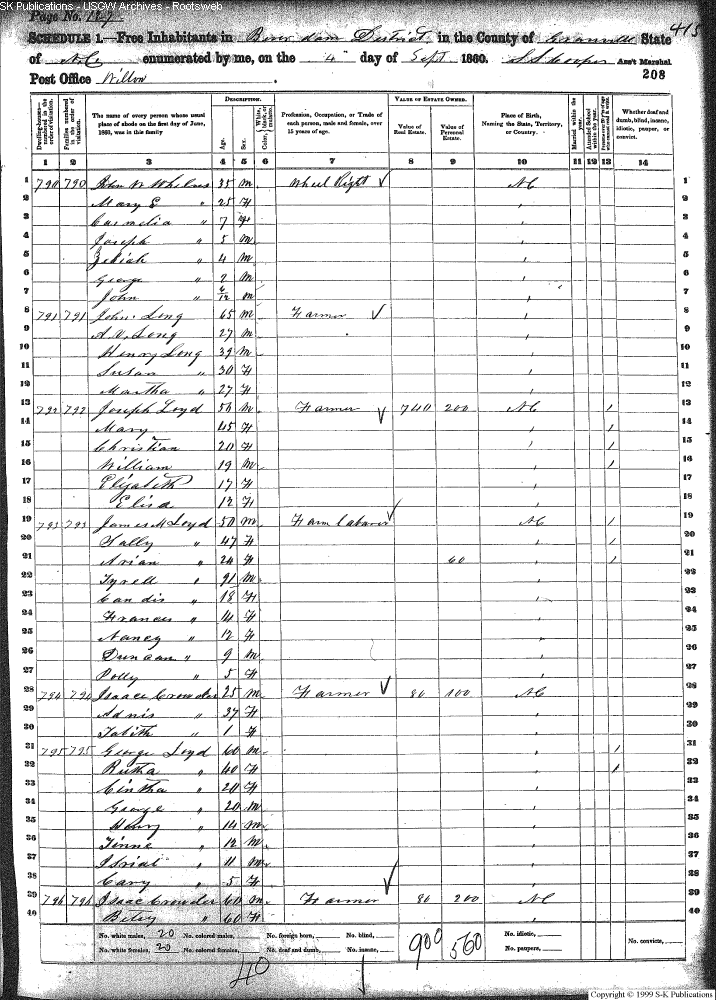 SK Publications - USGW Archives - Rootsweb
Page No. 107
415
SCHEDULE 1.—Free Inhabitants in Beaver dam District in the County of Granville State
of N.C enumerated by me, on the 4 day of Sept 1860. S S Cooper Ass't Marshal
Post Office Wilton
208
Dwelling-houses—numbered in the order of visitation.
Families numbered in the order of visitation.
The name of every person whose usual place of abode on the first day of June, 1860, was in this family
DESCRIPTION.
Age.
Sex.
Color, White, black, or mulatto.
Profession, Occupation, or Trade of each person, male and female, over 15 years of age.
VALUE OF ESTATE OWNED.
Value of Real Estate.
Value of Personal Estate.
Place of Birth, Naming the State, Territory, or Country.
Married within the year.
Attended School within the year.
Whether deaf and dumb, blind, insane, idiotic, pauper, or convict.
1 2 3 4 5 6 7 8 9 10 11 12 13 14
1 790 790 John W 35 m Wheel Right NC 1
2 Mary E " 25 F 2
3 " 7 3
4 Joseph " 5 m 4
5 " 4 m 5
6 George " 2 m 6
7 John " 6/12 m 7
8 791 791 John Long 65 m Farmer 8
9 Long 27 m 9
10 Henry Long 39 m 10
11 Susan " 30 F 11
12 Martha " 27 F 12
13 792 792 Joseph Loyd 50 m Farmer 740 200 NC 1 13
14 Mary 45 F 1 14
15 Christian 20 F 1 15
16 William 19 m 1 16
17 Elizabeth 17 F 17
18 Eliza 12 F 18
19 793 793 James M Loyd 50 m Farm Laborer NC 1 19
20 Sally " 47 F 1 20
21 Arian " 24 F 60 1 21
22 Tyrell " 21 m 22
23 Candis " 18 F 23
24 Frances " 14 F 24
25 Nancy " 12 F 25
26 Duncan " 9 m 26
27 Polly " 5 F 27
28 794 794 Isaac Crowder 25 m Farmer 80 100 NC 28
29 " 37 F 29
30 Tabith " 1 F 30
31 795 795 George Loyd 60 m 1 31
32 Rutha " 40 F 1 32
33 Cintha " 20 F 33
34 George " 20 m 34
35 Henry " 14 m 35
36 " 12 m 36
37 " 11 m 37
38 Cary " 5 F 38
39 796 796 Isaac Crowder 60 m Farmer 80 200 NC 39
40 Betsy " 60 F 40
No. white males, 20 No. colored males, No. foreign born, No. blind, 900 560 No. idiotic, No. convicts,
No. white females, 20 No. colored females, No. deaf and dumb, No. insane, No. paupers,
40
Copyright © 1999 S-K Publications